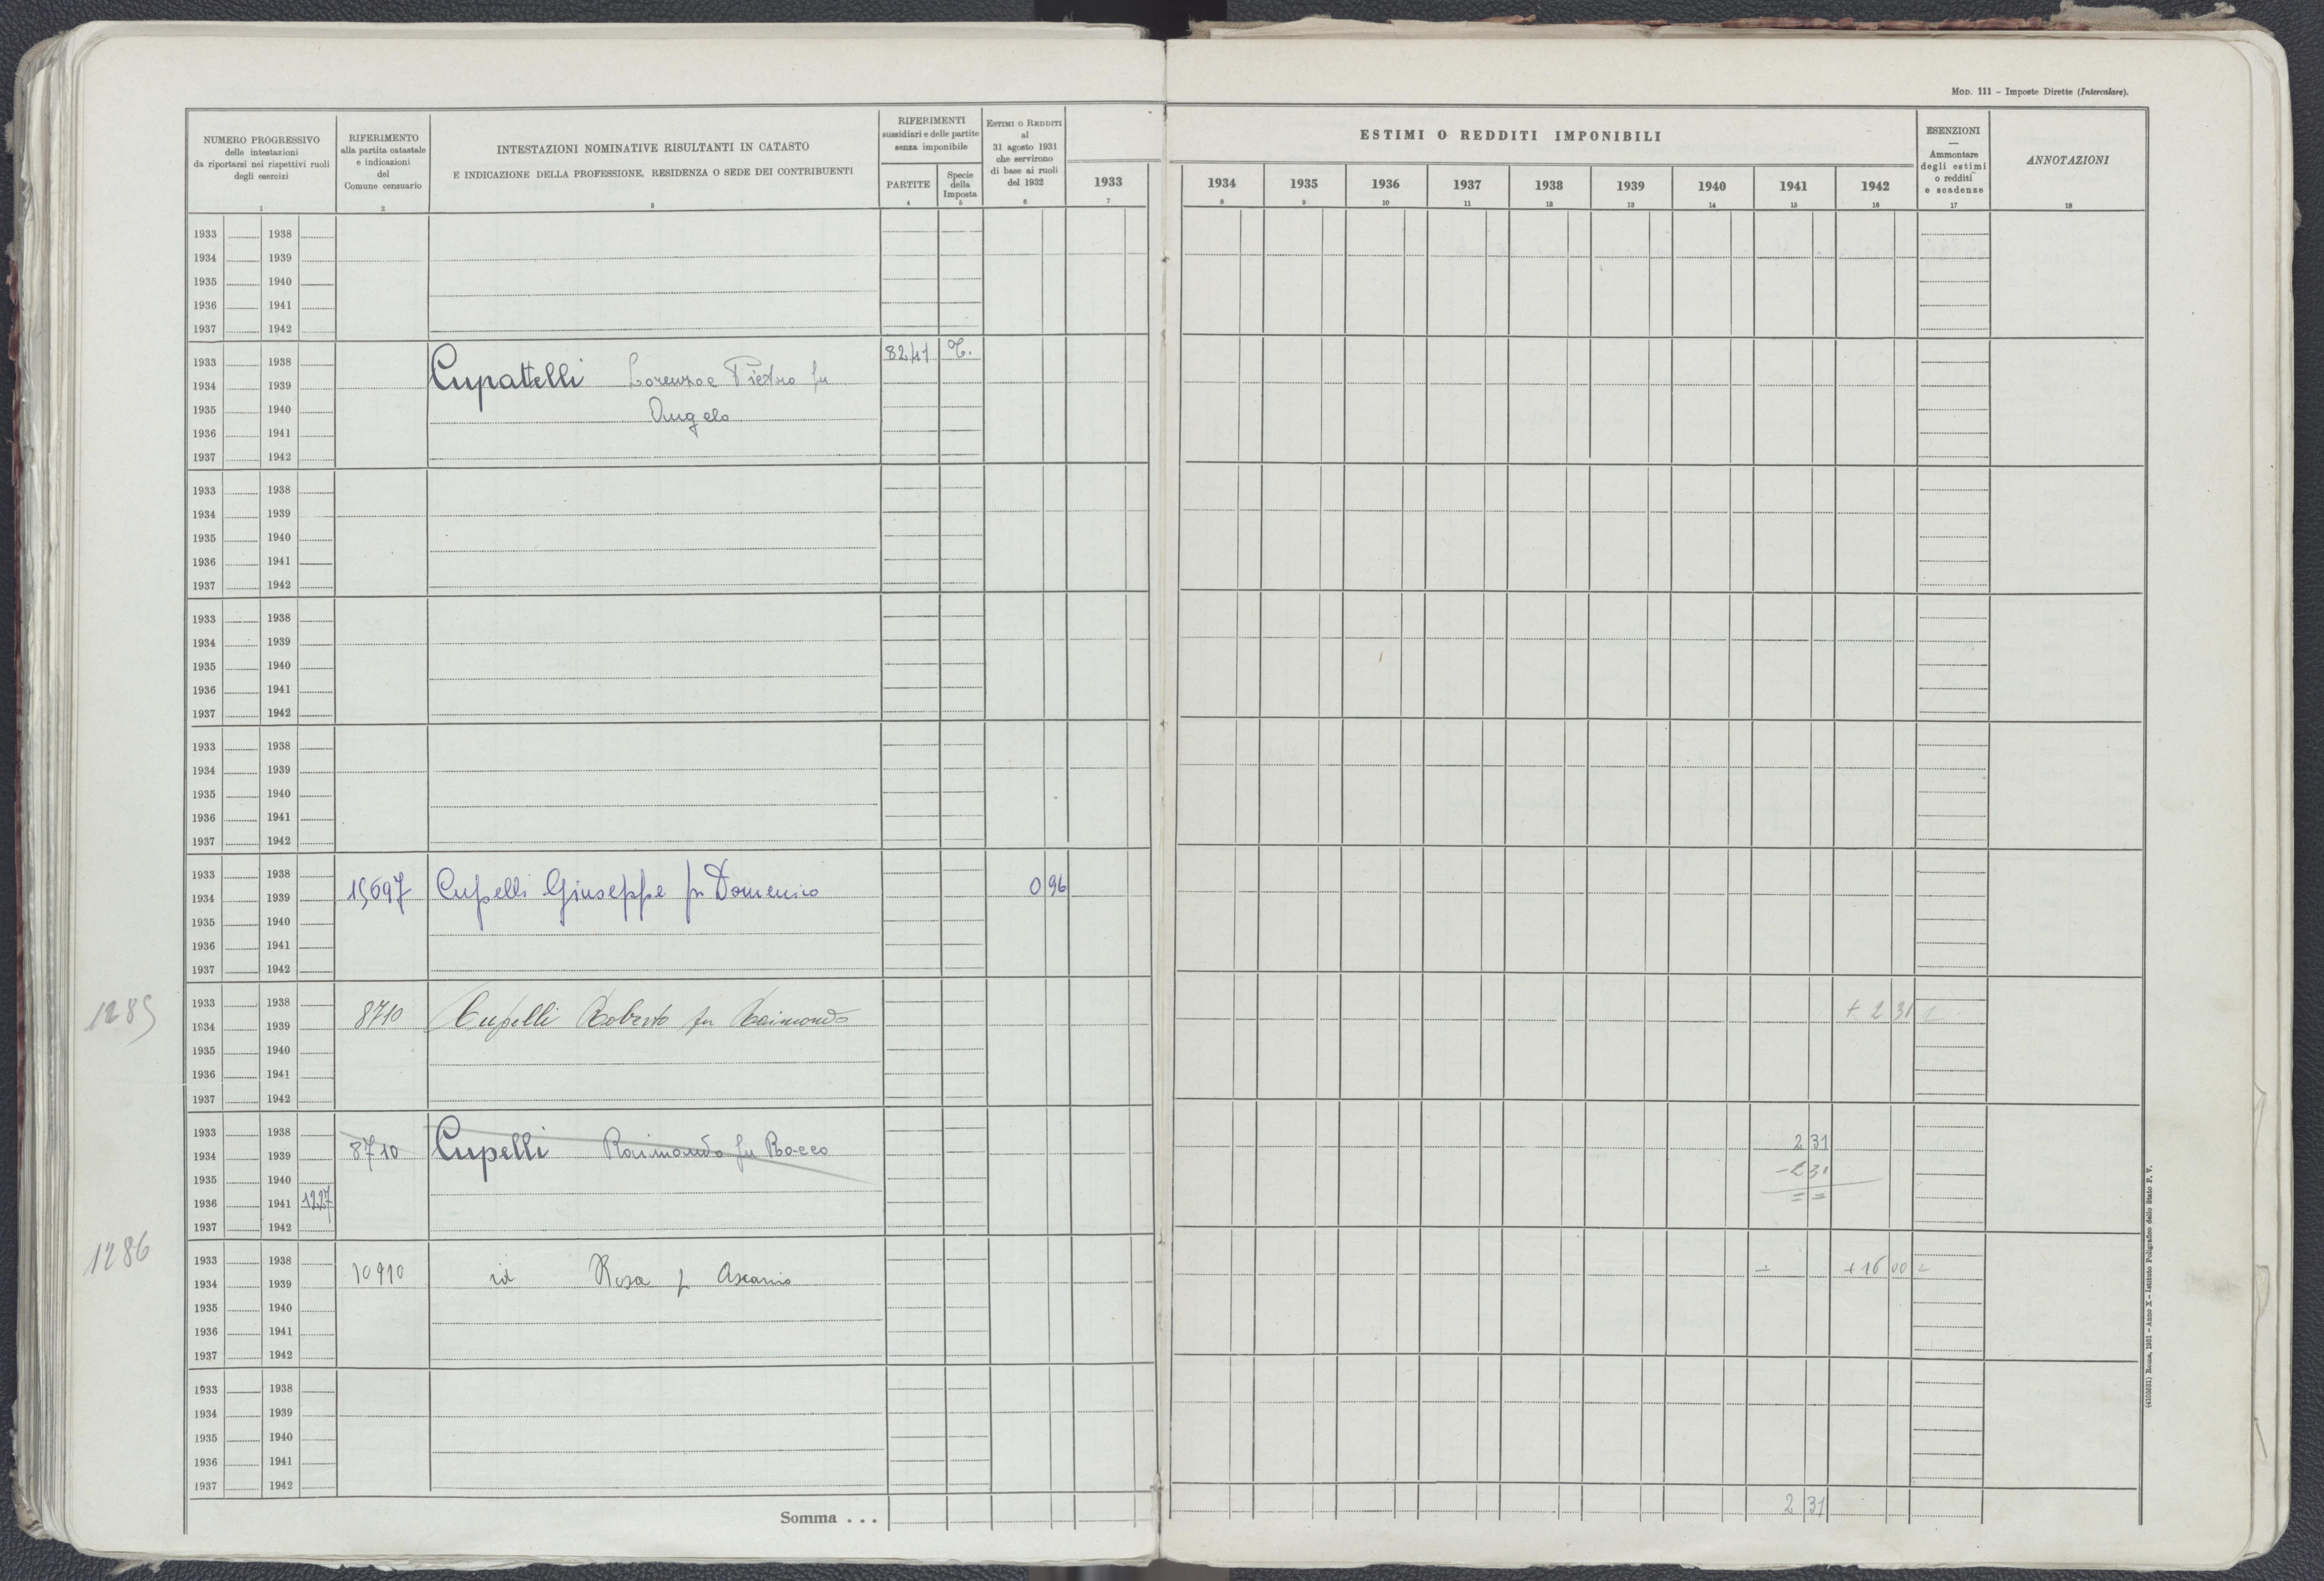 Mod. 111 – Imposte Dirette (Intercalare).
NUMERO PROGRESSIVO
delle intestazioni
da riportarsi nei rispettivi ruoli
degli esercizi
1
RIFERIMENTO
alla partita catastale
e indicazioni
del
Comune censuario
2
INTESTAZIONI NOMINATIVE RISULTANTI IN CATASTO
E INDICAZIONE DELLA PROFESSIONE, RESIDENZA O SEDE DEI CONTRIBUENTI
3
RIFERIMENTI
sussidiari e delle partite
senza imponibile
PARTITE
4
Specie
della
Imposta
5
Estimi o Redditi
al
31 agosto 1931
che servirono
di base ai ruoli
del 1932
6
1933
7
ESTIMI O REDDITI IMPONIBILI
1934 1935 1936 1937 1938 1939 1940 1941 1942
8 9 10 11 12 13 14 15 16
ESENZIONI
—
Ammontare
degli estimi
o redditi
e scadenze
17
ANNOTAZIONI
18
1933 1938
1934 1939
1935 1940
1936 1941
1937 1942
1933 1938 8241 T.
1934 1939 Cupattelli Lorenzo e Pietro fu
1935 1940 Angelo
1936 1941
1937 1942
1933 1938
1934 1939
1935 1940
1936 1941
1937 1942
1933 1938
1934 1939
1935 1940
1936 1941
1937 1942
1933 1938
1934 1939
1935 1940
1936 1941
1937 1942
1933 1938
1934 1939 15697 Cupelli Giuseppe fu Domenico 0 96
1935 1940
1936 1941
1937 1942
1285
1933 1938
1934 1939 8710 Cupelli Roberto fu Raimondo + 2 31
1935 1940
1936 1941
1937 1942
1933 1938
1934 1939 8710 Cupelli Raimondo fu Rocco 2 31
1935 1940 - 2 31
1936 1941 1227 = =
1937 1942
1286
1933 1938
1934 1939 10910 id Rosa f Ascanio + 16 00
1935 1940
1936 1941
1937 1942
1933 1938
1934 1939
1935 1940
1936 1941
1937 1942
Somma . . . 2 31
(4103031) Roma, 1931 – Anno X – Istituto Poligrafico dello Stato P. V.